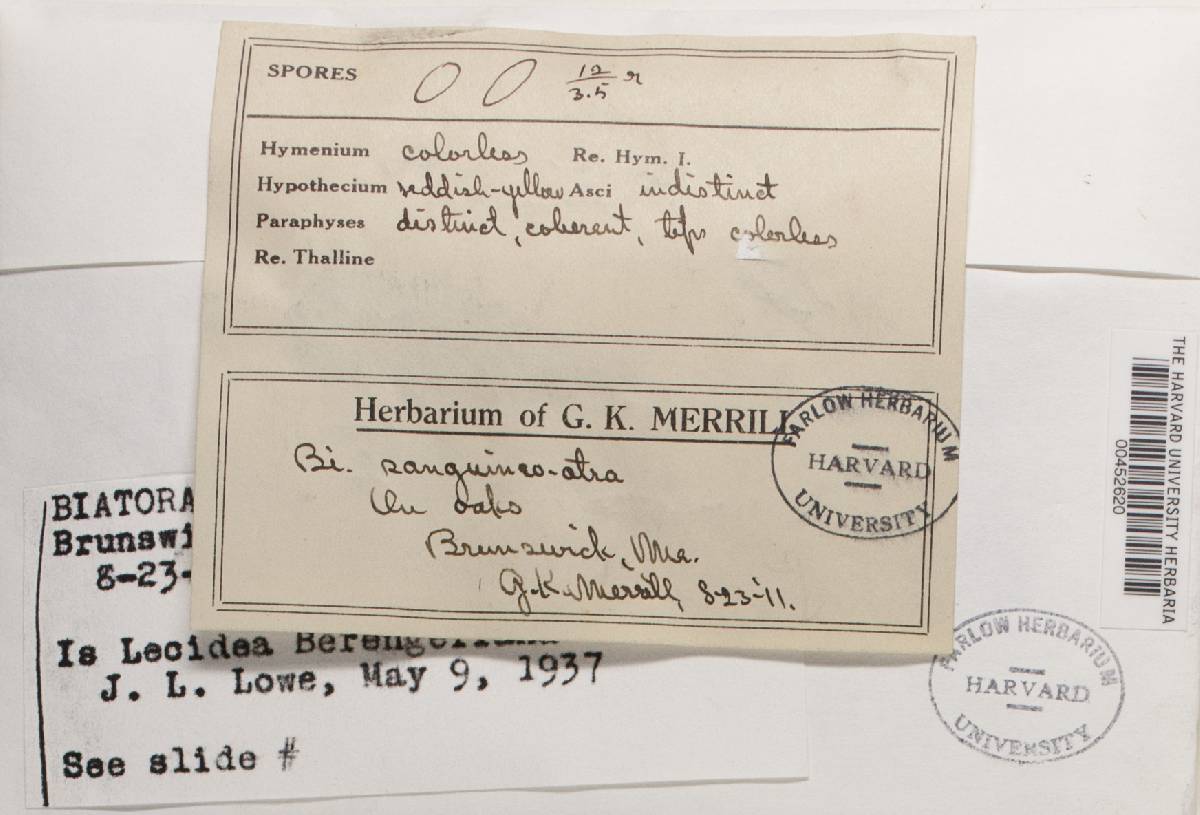 SPORES 12/3.5
Hymenium colorless Re. Hym. I.
Hypothecium reddish-yellow Asci indistinct
Paraphyses distinct, coherent, tips colorless
Re. Thalline
Herbarium of G. K. MERRILL
Bi. sanguineo-atra
On oaks
Brunswick, Me.
G.K. Merrill, 8-23-'11.
FARLOW HERBARIUM
HARVARD
UNIVERSITY
BIATORA
Brunswi
8-23-
Is Lecidea
J. L. Lowe, May 9, 1937
See slide #
FARLOW HERBARIUM
HARVARD
UNIVERSITY
THE HARVARD UNIVERSITY HERBARIA
00452620